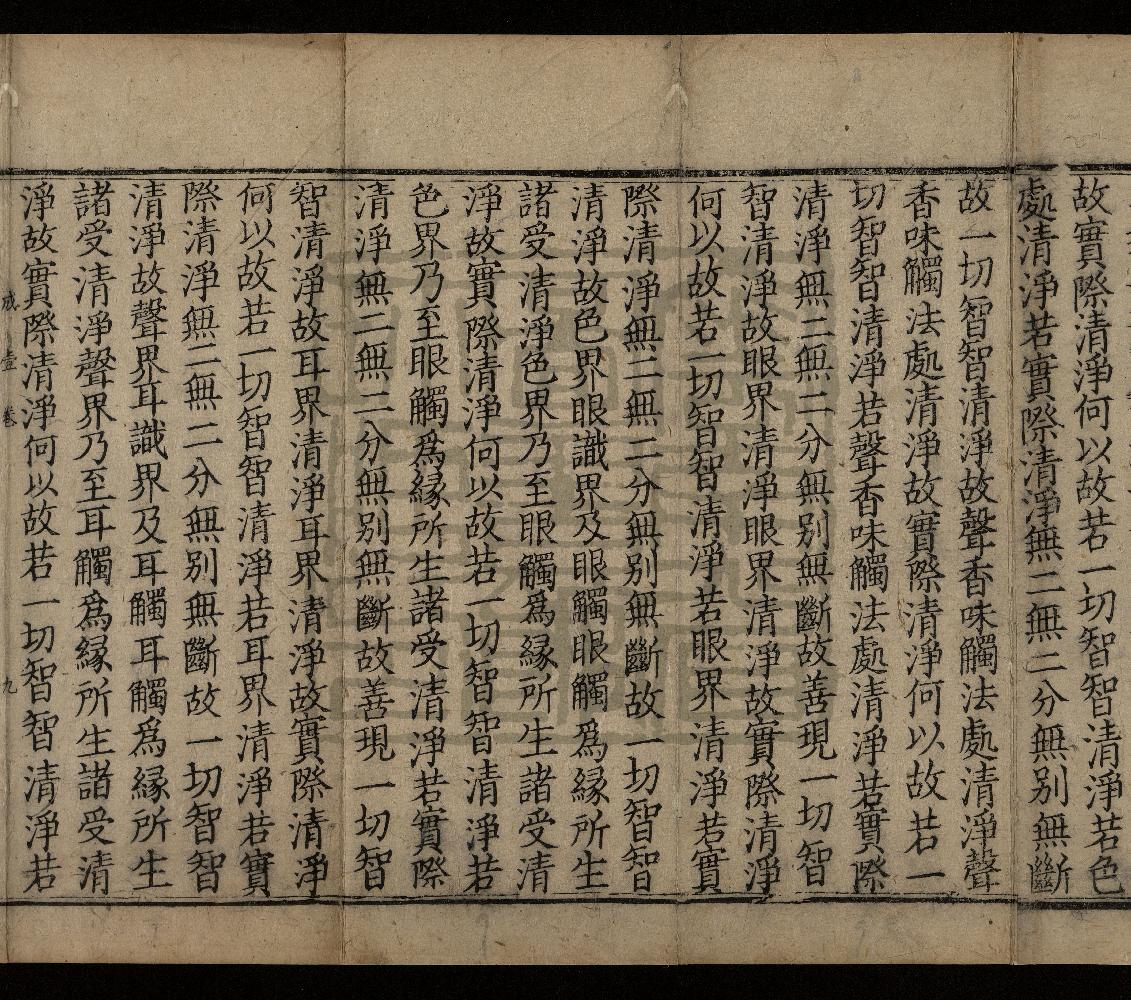 故實際清淨何以故若一切智智清淨若色
處清淨若實際清淨無二無二分無別無斷
故一切智智清淨故聲香味觸法處清淨聲
香味觸法處清淨故實際清淨何以故若一
切智智清淨若聲香味觸法處清淨若實際
清淨無二無二分無别無斷故善現一切智
智清淨故眼界清淨眼界清淨故實際清淨
何以故若一切智智清淨若眼界清淨若實
際清淨無二無二分無别無斷故一切智智
清淨故色界眼識界及眼觸眼觸爲緣所生
諸受清淨色界乃至眼觸爲緣所生諸受清
淨故實際清淨何以故若一切智智清淨若
色界乃至眼觸爲緣所生諸受清淨若實際
清淨無二無二分無别無斷故善現一切智
智清淨故耳界清淨耳界清淨故實際清淨
何以故若一切智智清淨若耳界清淨若實
際清淨無二無二分無别無斷故一切智智
清淨故聲界耳識界及耳觸耳觸爲緣所生
諸受清淨聲界乃至耳觸爲緣所生諸受清
淨故實際清淨何以故若一切智智清淨若
壹 卷 九